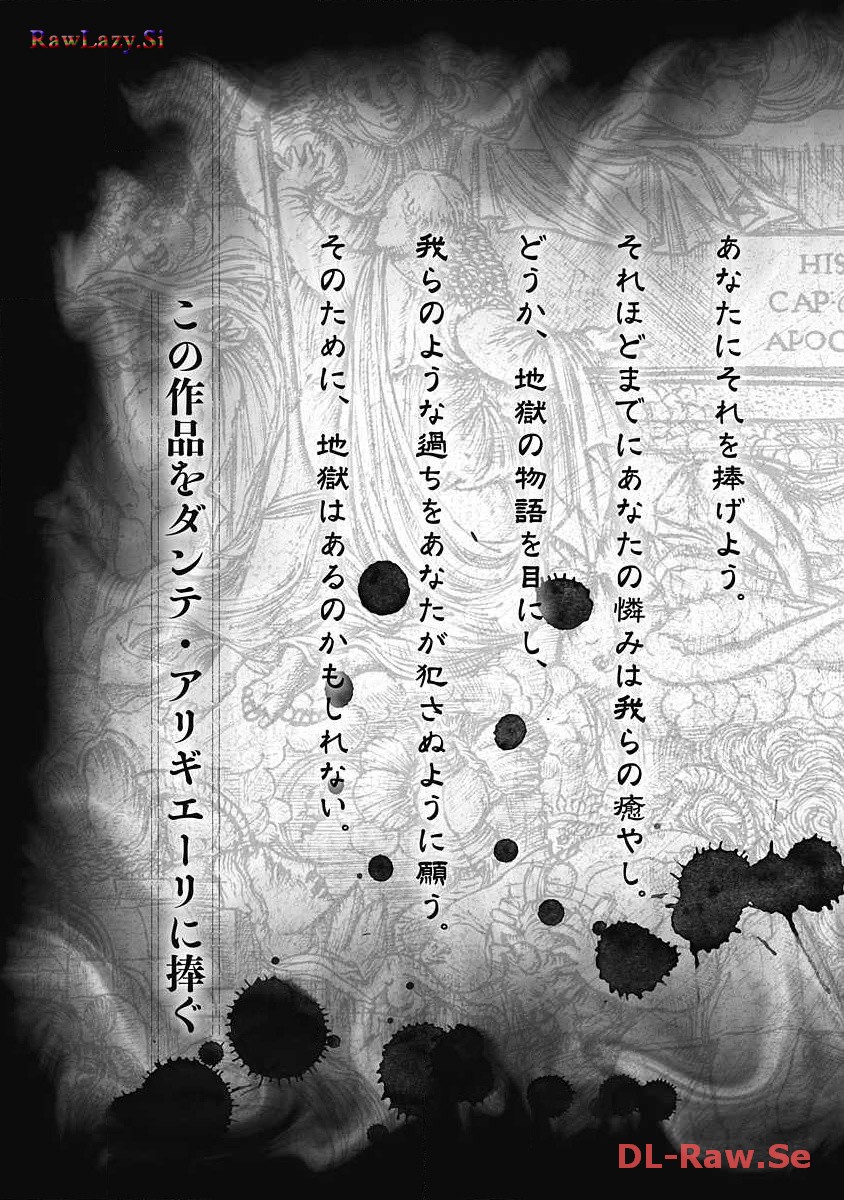 RawLazy.Si
あなたにそれを捧げよう。
それほどまでにあなたの憐みは我らの癒やし。
どうか、地獄の物語を目にし、
我らのような過ちをあなたが犯さぬように願う。
そのために、地獄はあるのかもしれない。
この作品をダンテ・アリギエーリに捧ぐ
HIS
CAP·
APOC
DL-Raw.Se